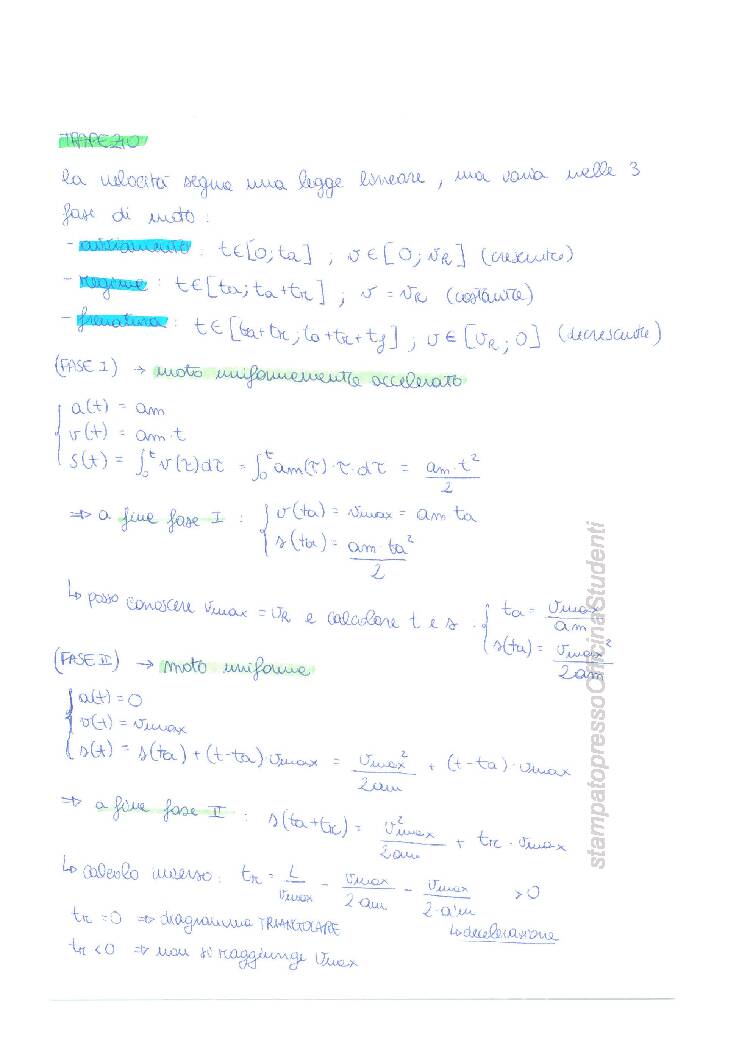 TRAPEZIO
la velocità segue una legge lineare, ma varia nelle 3
fase di moto:
- avviamento : t∈[0; ta] ; v∈[0; vR] (crescente)
- regime : t∈[ta; ta+tr] ; v = vR (costante)
- frenatura : t∈[ta+tr; ta+tr+tf] ; v∈[vR; 0] (decrescente)
(FASE I) → moto uniformemente accelerato
a(t) = am
v(t) = am·t
s(t) = ∫₀ᵗ v(τ)dτ = ∫₀ᵗ am(τ)·τ·dτ = am·t²/2
⇒ a fine fase I : v(ta) = vmax = am ta
s(ta) = am·ta²/2
↳ posso conoscere vmax = vR e calcolare t e s : ta = vmax/am
s(ta) = vmax²/2am
(FASE II) → moto uniforme
a(t) = 0
v(t) = vmax
s(t) = s(ta) + (t-ta) vmax = vmax²/2am + (t-ta)·vmax
⇒ a fine fase II : s(ta+tr) = vmax²/2am + tr·vmax
↳ calcolo inverso: tr = L/vmax - vmax/2·am - vmax/2·a'm >0
↳ decelerazione
tr = 0 ⇒ diagramma TRIANGOLARE
tr < 0 ⇒ non si raggiunge vmax
stampatopressoOfficinaStudenti